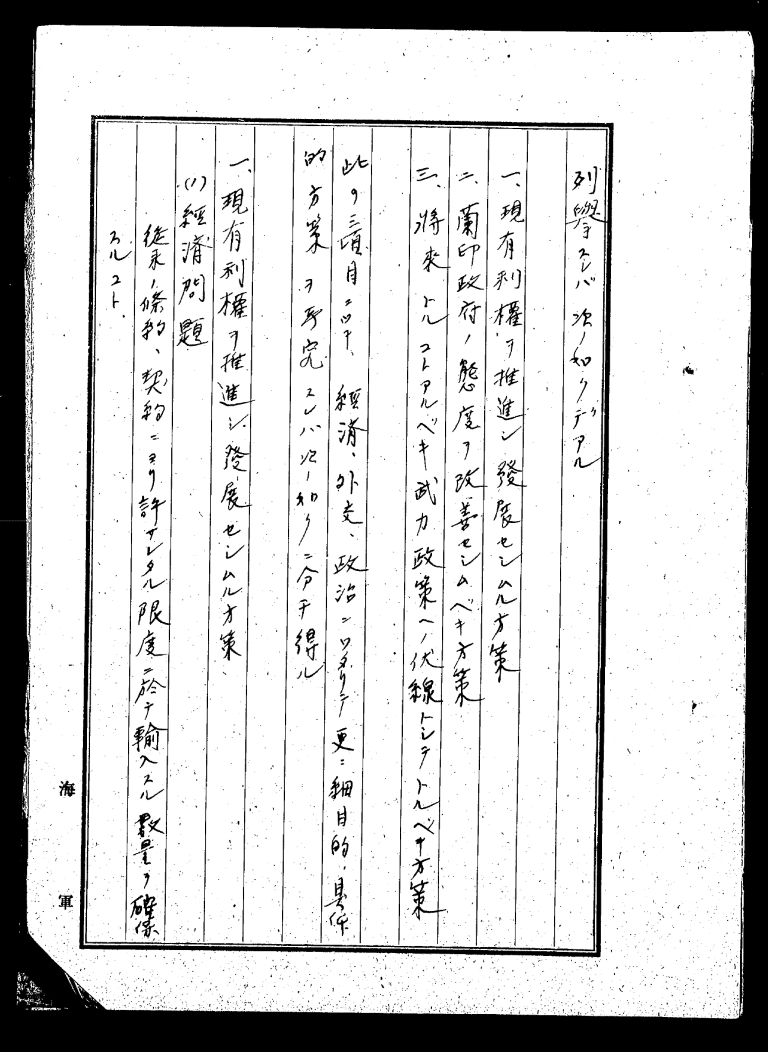 列擧スレバ次ノ如クデアル
一、現有利權ヲ推進シ發展セシムル方策
二、蘭印政府ノ態度ヲ改善セシムベキ方策
三、將來トルコトアルベキ武力政策ヘノ伏線トシテトルベキ方策
此ノ三項目ニツキ、經濟、外交、政治ニワタリテ更ニ細目的、具体
的方策ヲ研究スレバ次ノ如クニ分チ得ル
一、現有利權ヲ推進シ、發展セシムル方策、
(1)經濟問題
從來ノ條約、契約ニヨリ許サレタル限度ニ於テ輸入スル數量ヲ確保
スルコト、
海軍